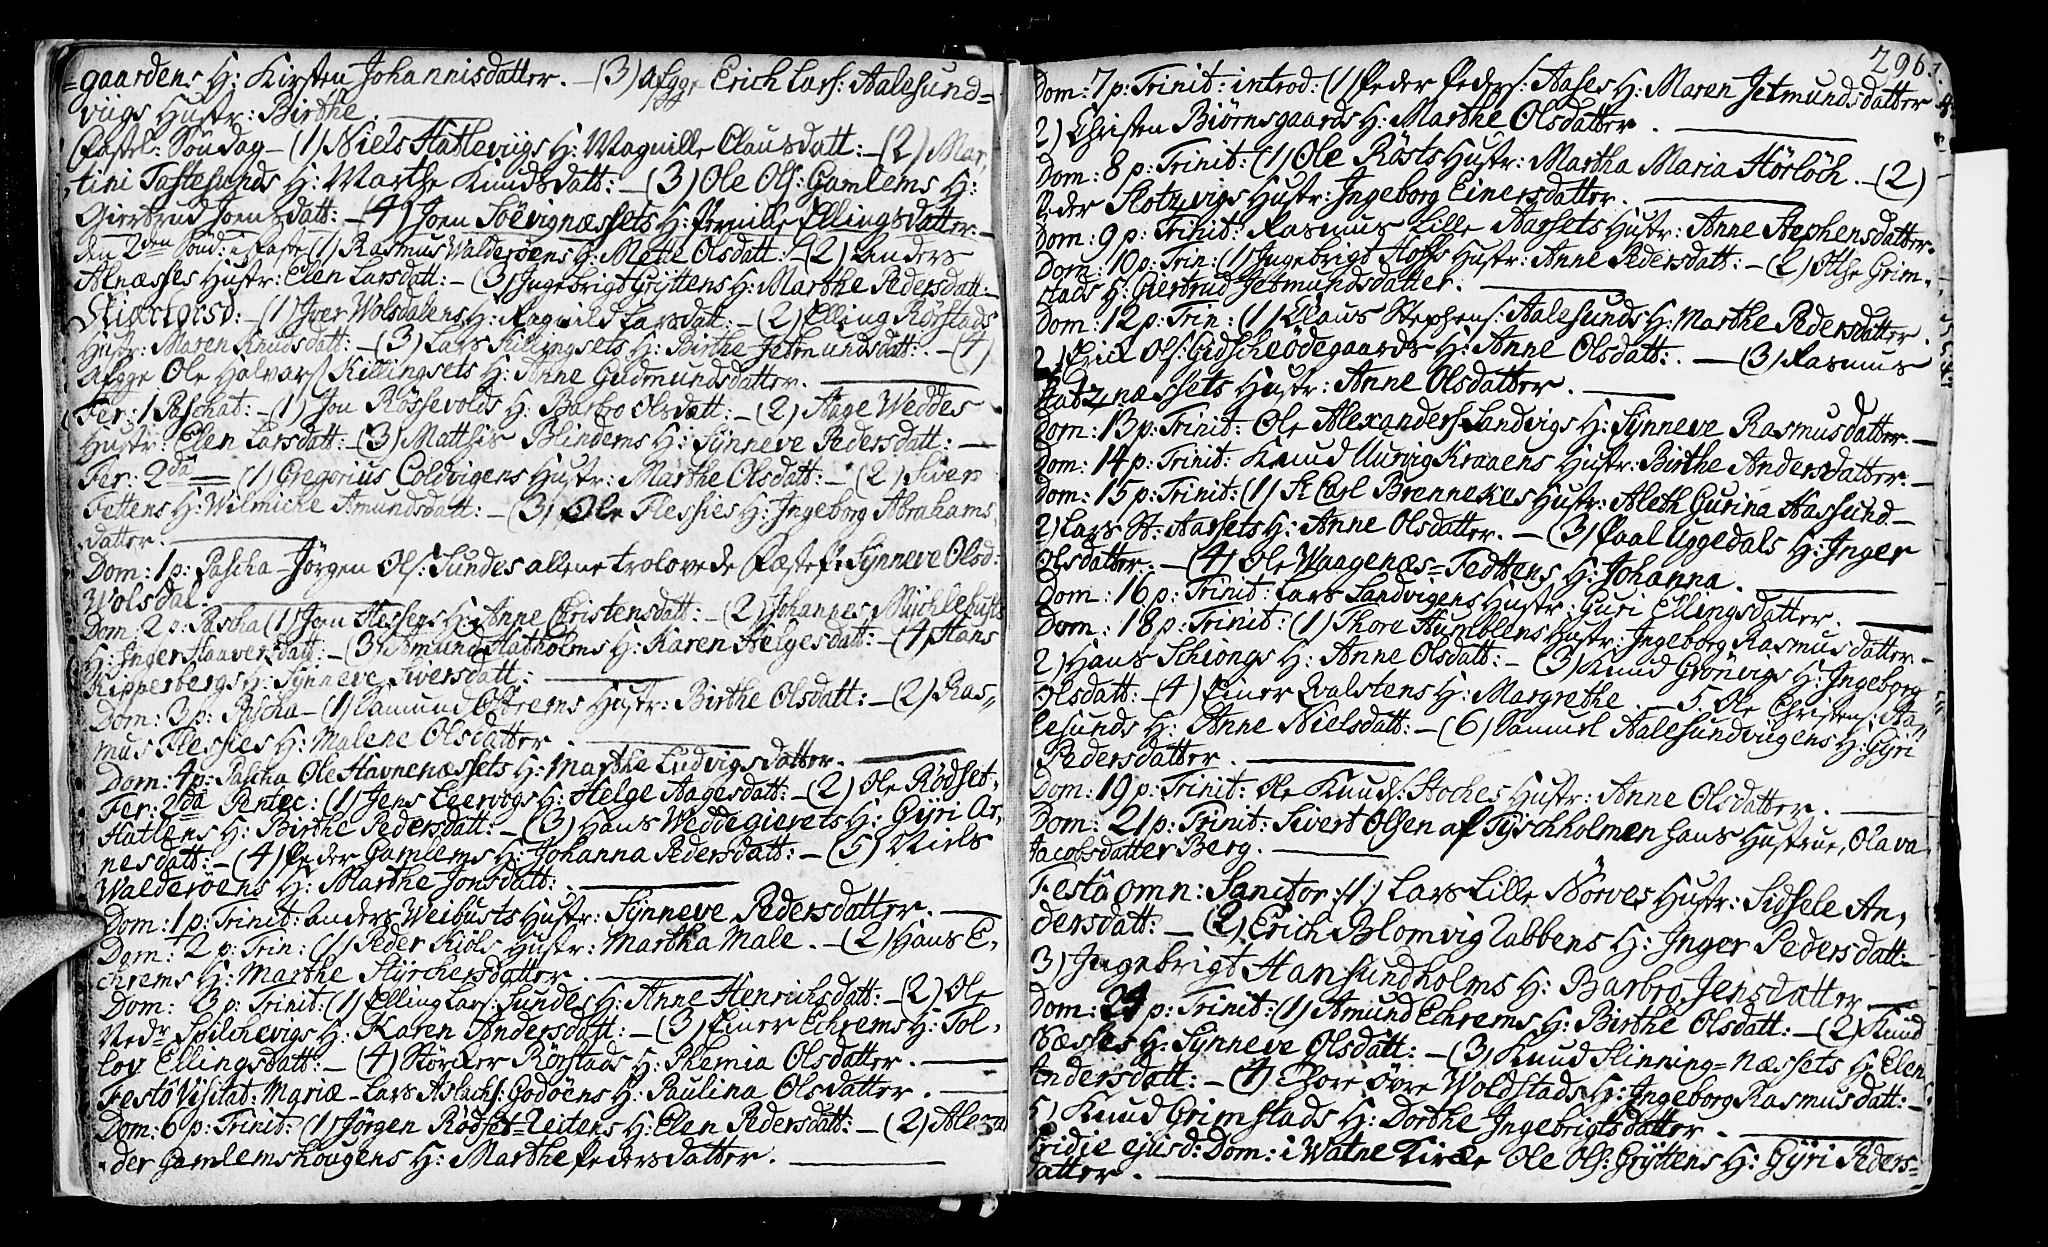 =gaardens H: Kirsten Johannisdatter. – (3) afgge Erich Lars: Aalesund=
viigs Hustr: Birthe.
Fastel: Søndag – (1) Niels Hatleviigs H: Magnille Clausdatt: – (2) Mar,
tini Tastesunds H: Marthe Knudsdatt: – (3) Ole Ols: Gamlems H:
Giertrud Joensdatt: – (4) Joen Søevignæssets H: Pernille Ellingsdatter –
den 2den Sønd: i Faste (1) Rasmus Walderøens H: Mete Olsdatt: – (2) Anders
Alnæsses Hustr: Elen Larsdatt: – (3) Ingebrigt Gryttens H: Marthe Pedersdatt: –
Skiærtorsd: – (1) Iver Wolsdalens H: Ragnild Larsdatt: – (2) Elling Rørstads
Hustr: Maren Knudsdatt: – (3) Lars Killingsets H: Birthe Jetmundsdatt: – (4)
Afgge Ole Halvars: Killingsets H: Anne Gudmundsdatter.
Fer: 1 Paschat: – (1) Jon Røssevolds H: Barbro Olsdatt: – (2) Aage Weddes
Hustr: Elen Larsdatt: – (3) Matthis Blindems H: Synneve Pedersdatt: –
Fer: 2da – (1) Gregorius Coldvigens Hustr: Marthe Olsdatt: – (2) Siver
Fettens H: Wilmiche Amundsdatt: – (3) Ole Flessies H: Ingeborg Abrahams,
datter.
Dom: 1 p: Pascha – Jørgen Ols: Sundes allene trolovede Fæstep: Synneve Olsd:
Wolsdal.
Dom: 2 p: Pascha (1) Jon Hessens H: Anne Christensdatt: – (2) Johannes Mychlebusts
H: Inger Haaversdatt: – (3) Amund Hatholms H: Karen Helgesdatt: – (4) Hans
Kipperbergs H: Synneve Siversdatt:
Dom: 3 p: Pascha – (1) Amund Echrems Hustr: Birthe Olsdatt: – (2) Ras=
mus Flessies H: Malene Olsdatter.
Dom: 4 p: Pascha Ole Havnenæssets H: Marthe Ludvigsdatter.
Fer: 2da Pentec: (1) Jens Leervogs H: Helge Aagesdatt: – (2) Ole Rødset-
Hatlens H: Birthe Pedersdatt: – (3) Hans Weddegierets H: Gyri Ar,
nesdatt: – (4) Peder Gamlems H: Johanna Pedersdatt: – (5) Niels
Walderøens H: Marthe Jonsdatt:
Dom: 1 p: Trinit: anders Weibusts Hustr: Synneve Pedersdatter.
Dom: 2 p: Trin: (1) Peder Kiøls Hustr: Martha Male. – (2) Hans E,
chrems H: Marthe Styrchersdatter.
Dom: 3 p: Trinit: (1) Elling Lars: Sundes H: Anne Henrichsdatt: – (2) Ole
Nedr Spilchevigs H: Karen Andersdatt: – (3) Einer Echrems H: Tol,
lov Ellingsdatt: – (4) Størcker Rørstads H: Phemia Olsdatter.
Festô Visitat: Mariæ – Lars Aslachs: Godøens H: Paulina Olsdatter.
Dom: 6 p: Trinit: (1) Jørgen Rødset=Reitens H: Elen Pedersdatt: – (2) Alexan
der Gamlemshougens H: Marthe Pedersdatter.
296.
Dom: 7 p: Trinit: introd: (1) Peder Peders: Aases H: Maren Jetmundsdatter
2) Christen Biørnsgaards H: Marthe Olsdatter.
Dom: 8 p: Trinit: (1) Ole Røsts Hustr: Martha Maria Hørløch. – (2)
Peder Slotzvigs Hustr: Ingeborg Einersdatter.
Dom: 9 p: Trinit: Rasmus Lille Aarsets Hustr: Anne Stephensdatter.
Dom: 10 p: Trin: (1) Ingebrigt Hoffs Hustr: Anne Pedersdatt: – (2) Else Grim-
stads H: Giertrud Jetmundsdatter.
Dom: 12 p: Trin: (1) Claus Stephens: Aalesunds H: Marthe Pedersdatter.
2) Erick Ols: Gidscheødegaards H: Anne Olsdatt: – (3) Rasmus
Slotznæssets Hustr: Anne Olsdatter.
Dom: 13 p: Trinit: Ole Alexanders: Landvigs H: Synneve Rasmusdatter.
Dom: 14 p: Trinit: Knud Uurvig Kraaens Hustr: Birthe Andersdatter –
Dom: 15 p: Trinit: (1) Sr Carl Brennekes Hustr: Aleth Gurina Aassund –
2) Lars St: Aarsets H: Anne Olsdatter. – (3) Paal Uggedals H: Inger
Olsdatter. – (4) Ole Waagenæs=Fedttens H: Johanna.
Dom: 16 p: Trinit: Lars Sandvigens Hustr: Guri Ellingsdatter.
Dom: 18 p: Trinit: (1) Thore Humblens Hustr: Ingeborg Rasmusdatter –
2) Hans Schiongs H: Anne Olsdatt: – (3) Knud Grønvigs H: Ingeborg
Olsdatt: (4) Einer Qvalstens H: Margrethe. – 5. Ole Christens: Aa=
lesunds H: Anne Nielsdatt: – (6) Samuel Aalesundviigens H: Gyri
Pedersdatter.
Dom: 19 p: Trinit: Ole Knuds: Stoches Hustr: Anne Olsdatter.
Dom: 21 p: Trinit: Sivert Olsen af Tyschholmen hans Hustrue, Olava
Jacobsdatter Berg.
Festô omn: Sanctor: (1.) Lars Lille Nørves Hustr: Sidsele An,
dersdatt: – (2) Erich Blomvig Rabbens H: Inger Pedersdatt: –
3) Ingebrigt Hansundholms H: Barbro Jensdatter –
Dom: 24 p: Trinit: (1) Amund Echrems H: Birthe Olsdatt: – (2) Knud
Næsses H: Synneve Olsdatt: – (3) Knud Slinning=næssets H: Elen
Andersdatt: – (4) Thore Øvre Woldstads H: Ingeborg Rasmusdatt: –
5) Knud Grimstads H: Dorthe Ingebrigtsdatter.
Fridie ejusd: Dom: i Watne Kirke Ole Ols: Gryttens H: Gyri Peders=
datter.